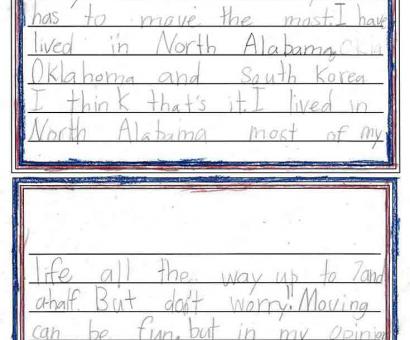 has to move the most. I have
lived in North Alabama, Okla
Oklahoma and South Korea
I think that's it. I lived in
North Alabama most of my
life all the way up to 7and
a-half. But don't worry! Moving
can be fun, but in my opinion